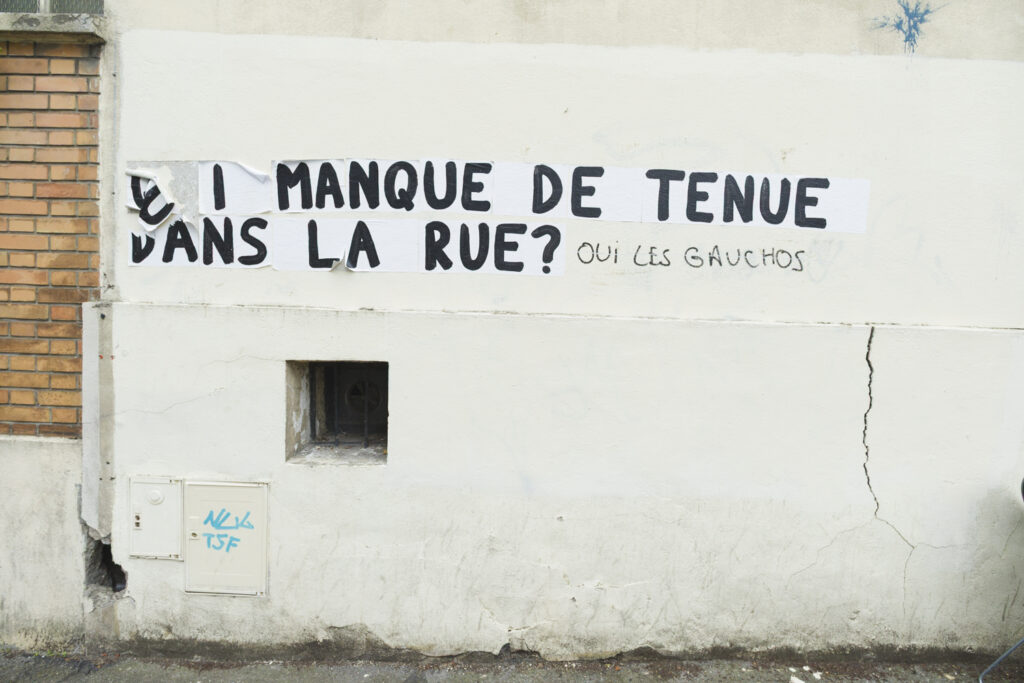 QUI MANQUE DE TENUE
DANS LA RUE? OUi LES GAUCHOS
TSF